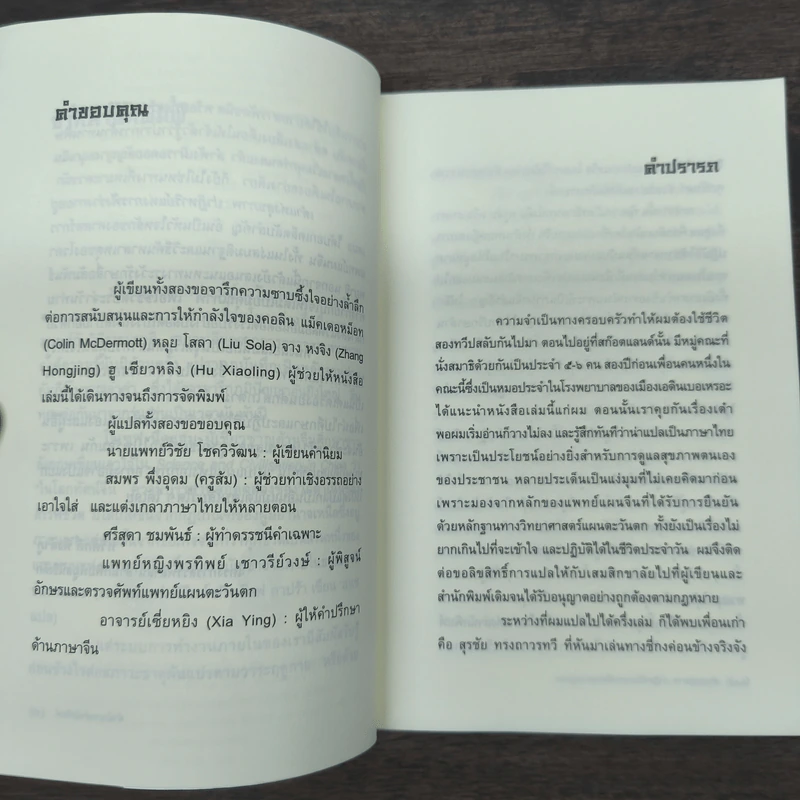 คำขอบคุณ
ผู้เขียนทั้งสองขอจารึกความซาบซึ้งใจอย่างล้ำลึก
ต่อการสนับสนุนและการให้กำลังใจของคอลิน แม็คเดอหม็อท
(Colin McDermott) หลุย โสลา (Liu Sola) จาง หงจิง (Zhang
Hongjing) ฮู เซียวหลิง (Hu Xiaoling) ผู้ช่วยให้หนังสือ
เล่มนี้ได้เดินทางจนถึงการจัดพิมพ์
ผู้แปลทั้งสองขอขอบคุณ
นายแพทย์วิชัย โชควิวัฒน : ผู้เขียนคำนิยม
สมพร พึ่งอุดม (ครูส้ม) : ผู้ช่วยทำเชิงอรรถอย่าง
เอาใจใส่ และแต่งเกลาภาษาไทยให้หลายตอน
ศรีสุดา ชมพันธ์ : ผู้ทำดรรชนีคำเฉพาะ
แพทย์หญิงพรทิพย์ เชาวรีย์วงษ์ : ผู้พิสูจน์
อักษรและตรวจศัพท์แพทย์แผนตะวันตก
อาจารย์เซี่ยหยิง (Xia Ying) : ผู้ให้คำปรึกษา
ด้านภาษาจีน
คำปรารภ
ความจำเป็นทางครอบครัวทำให้ผมต้องใช้ชีวิต
สองทวีปสลับกันไปมา ตอนไปอยู่ที่สก๊อตแลนด์นั้น มีหมู่คณะที่
นั่งสมาธิด้วยกันเป็นประจำ ๕-๖ คน สองปีก่อนเพื่อนคนหนึ่งใน
คณะนี้ซึ่งเป็นหมอประจำในโรงพยาบาลของเมืองเอดินเบอเหรอะ
ได้แนะนำหนังสือเล่มนี้แก่ผม ตอนนั้นเราคุยกันเรื่องเต๋า
พอผมเริ่มอ่านก็วางไม่ลง และรู้สึกทันทีว่าน่าแปลเป็นภาษาไทย
เพราะเป็นประโยชน์อย่างยิ่งสำหรับการดูแลสุขภาพตนเอง
ของประชาชน หลายประเด็นเป็นแง่มุมที่ไม่เคยคิดมาก่อน
เพราะมองจากหลักของแพทย์แผนจีนที่ได้รับการยืนยัน
ด้วยหลักฐานทางวิทยาศาสตร์แผนตะวันตก ทั้งยังเป็นเรื่องไม่
ยากเกินไปที่จะเข้าใจ และปฏิบัติได้ในชีวิตประจำวัน ผมจึงติด
ต่อขอลิขสิทธิ์การแปลให้กับเสมสิกขาลัยไปที่ผู้เขียนและ
สำนักพิมพ์เดิมจนได้รับอนุญาตอย่างถูกต้องตามกฎหมาย
ระหว่างที่ผมแปลไปได้ครึ่งเล่ม ก็ได้พบเพื่อนเก่า
คือ สุรชัย ทรงถาวรทวี ที่หันมาเล่นทางชี่กงค่อนข้างจริงจัง